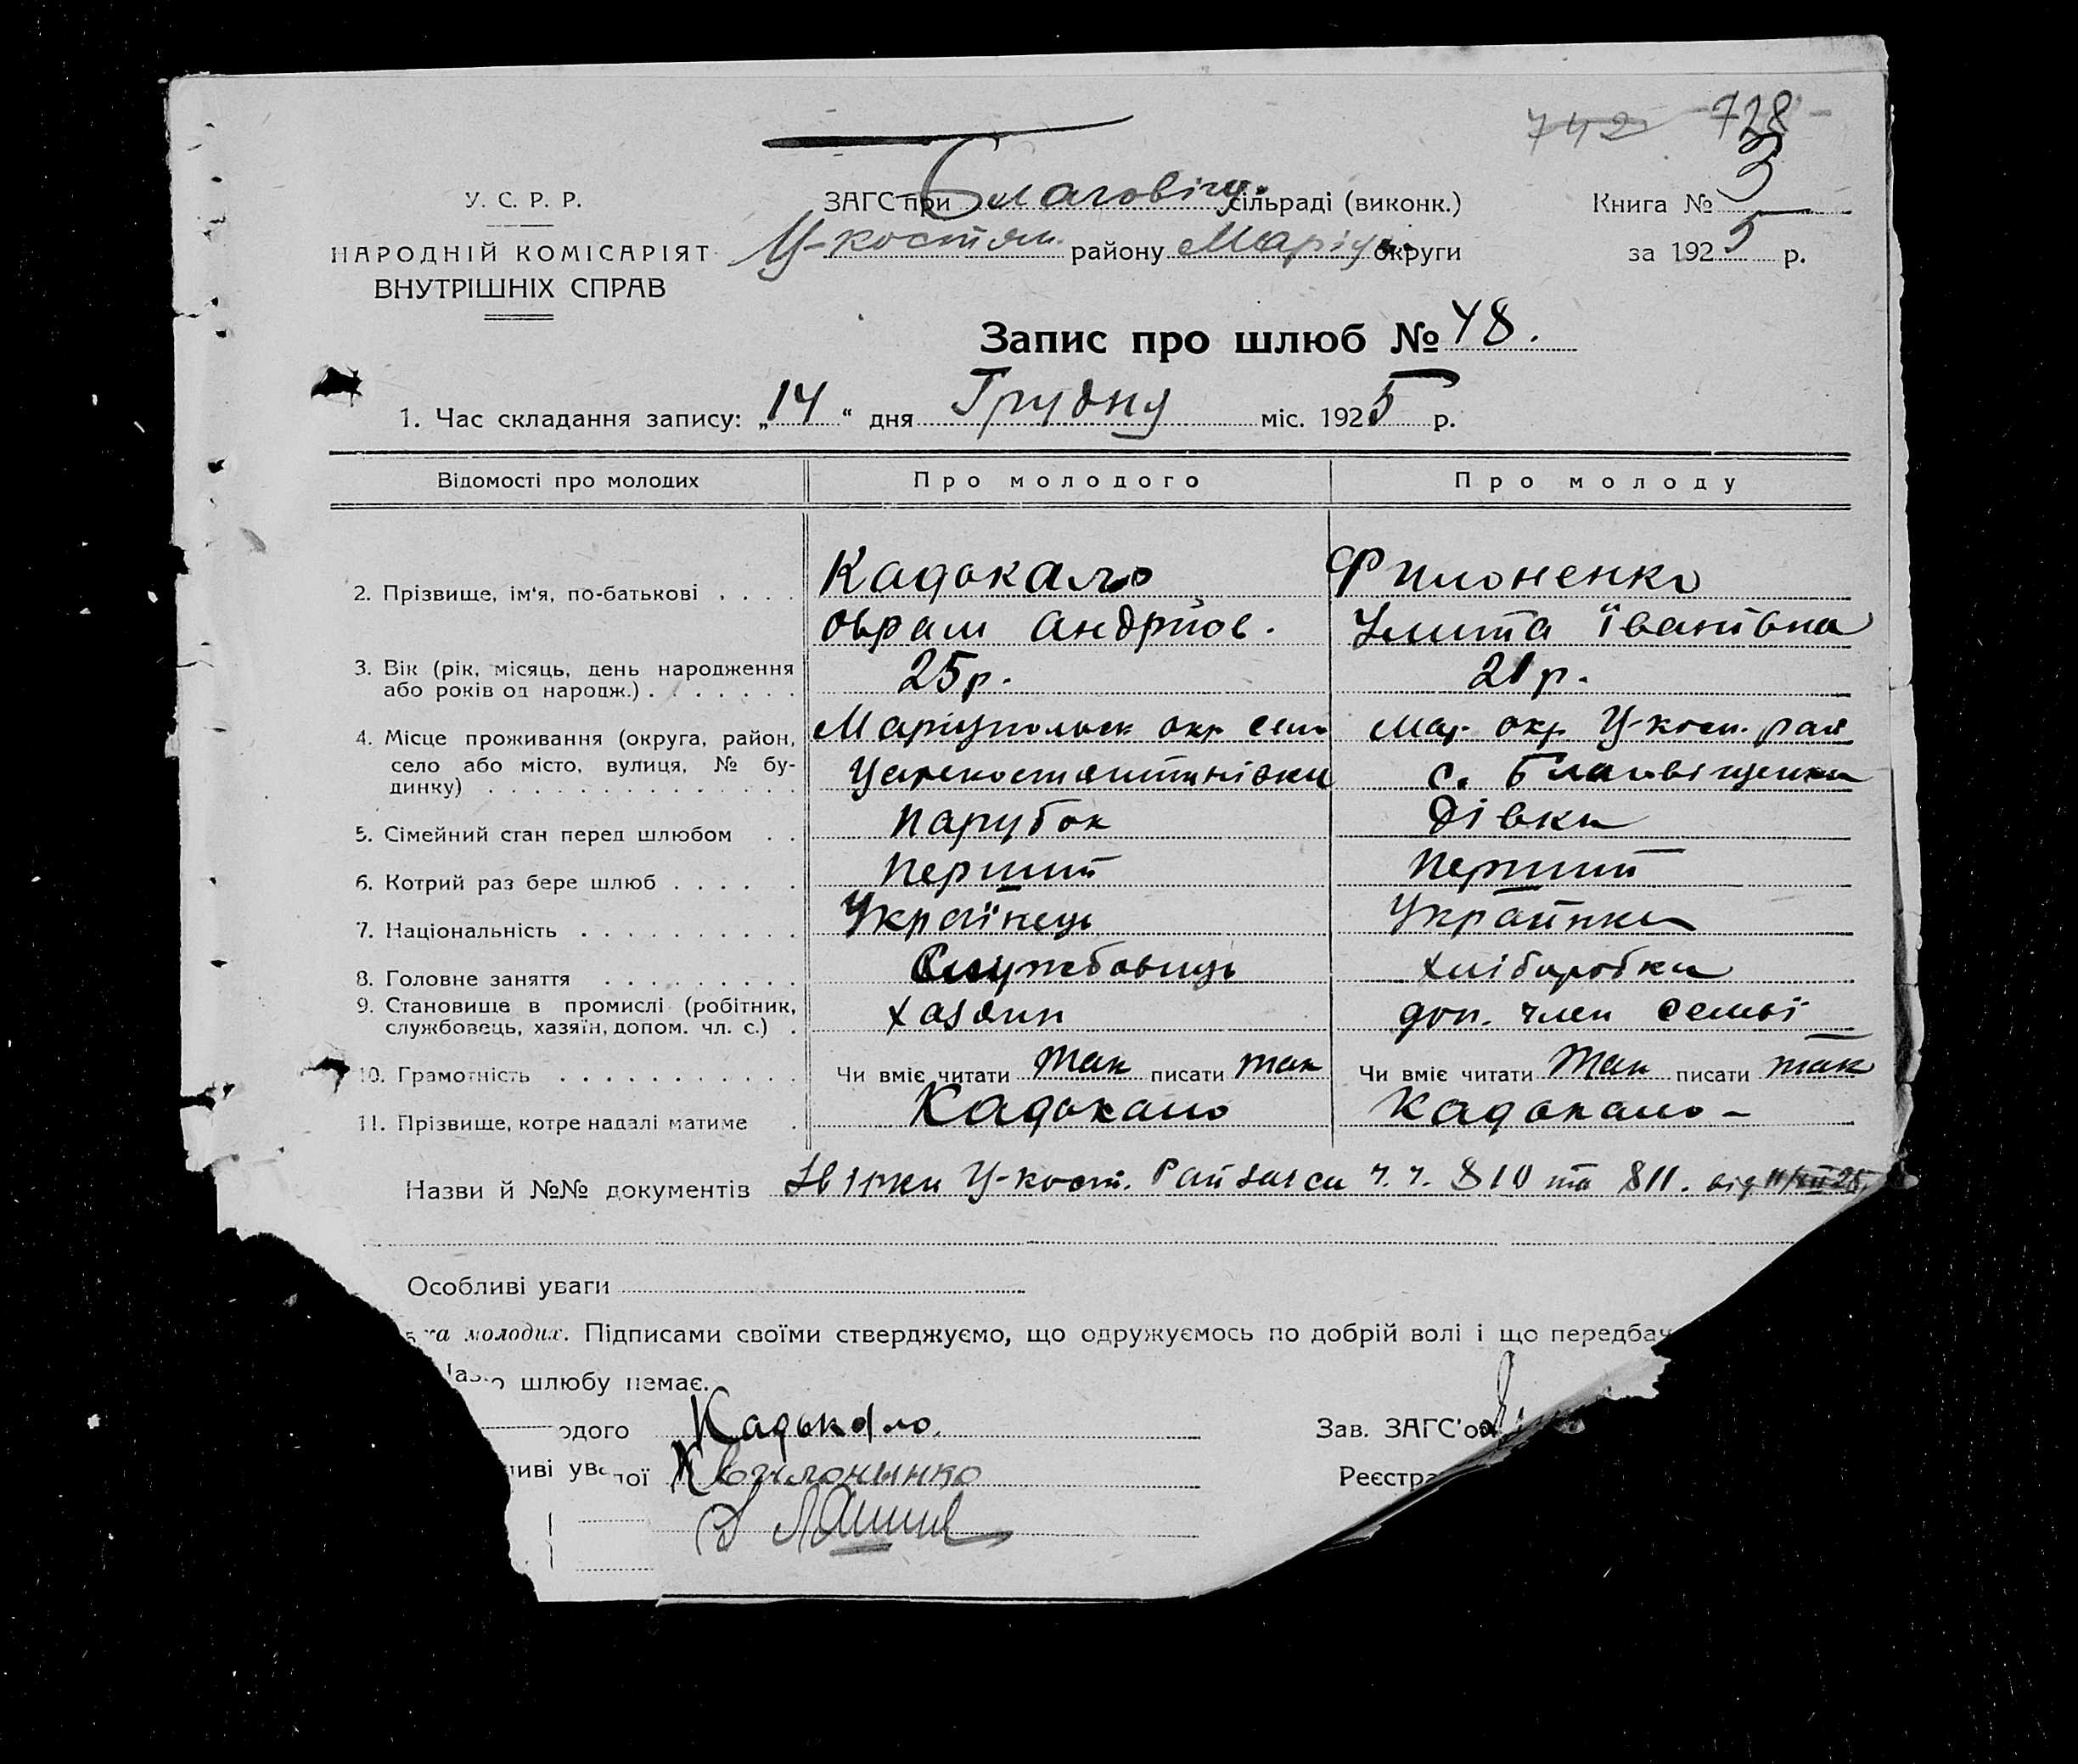 742 728
У. С. Р. Р.
ЗАГС при Благовіщ. сільраді (виконк.)
Книга № 3
НАРОДНІЙ КОМІСАРІЯТ
ВНУТРІШНІХ СПРАВ
Ц-костян. району Маріуп. округи
за 1925 р.
Запис про шлюб № 48.
1. Час складання запису: „14“ дня Грудня міс. 1925 р.
Відомості про молодих
Про молодого
Про молоду
2. Прізвище, ім'я, по-батькові . . . .
Кадокало
Филоненко
Овраам Андрійов.
Улита Іванівна
3. Вік (рік, місяць, день народження
або років од народж.) . . . . . . .
25р.
21р.
4. Місце проживання (округа, район,
село або місто, вулиця, № бу-
динку) . . . . . . . . . . . . . .
Маріупольск окр село
Мар. окр Ц-косн. рай
Царекостянтинівки
с. Благовіщенки
5. Сімейний стан перед шлюбом . .
Парубок
Дівка
6. Котрий раз бере шлюб . . . . .
Перший
Перший
7. Національність . . . . . . . . . .
Українець
Українка
8. Головне заняття . . . . . . . . .
Службовець
Хліборобка
9. Становище в промислі (робітник,
службовець, хазяїн, допом. чл. с.) .
хазяин
доп. член семьї
10. Грамотність . . . . . . . . . . .
Чи вміє читати Так писати так
Чи вміє читати Так писати так
11. Прізвище, котре надалі матиме .
Кадокало
Кадокало –
Назви й №№ документів Ц-кост. Райзагса ч. ч. 810 та 811. від 11/XII 25.
Особливі уваги
ка молодих. Підписами своїми стверджуємо, що одружуємось по добрій волі і що передбач
о шлюбу немає.
одого Кадокало.
Зав. ЗАГС'о
иві ув
ої
Реєстра